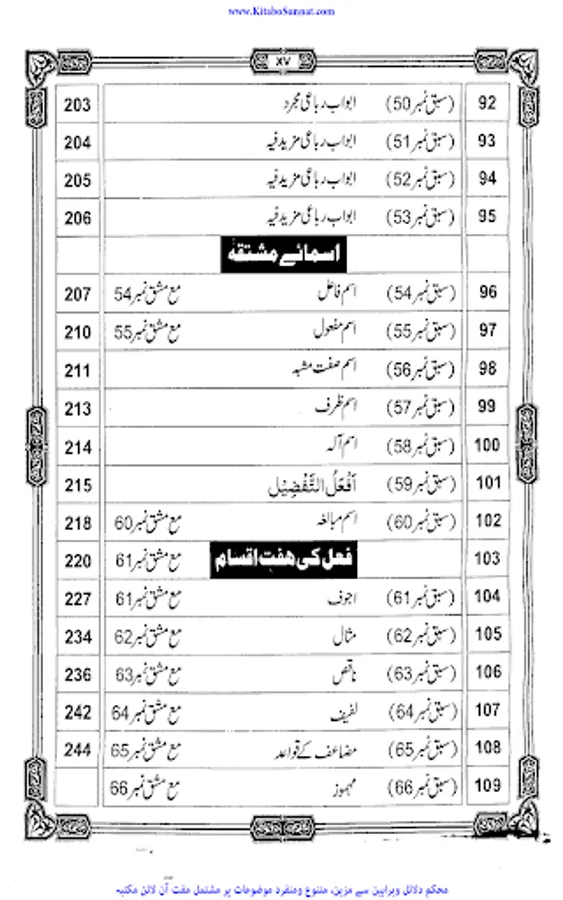 www.KitaboSunnat.com
XV
92 (سبق نمبر 50) ابواب رباعی مجرد 203
93 (سبق نمبر 51) ابواب رباعی مزید فیہ 204
94 (سبق نمبر 52) ابواب رباعی مزید فیہ 205
95 (سبق نمبر 53) ابواب رباعی مزید فیہ 206
اسمائے مشتقہ
96 (سبق نمبر 54) اسم فاعل مع مشق نمبر 54 207
97 (سبق نمبر 55) اسم مفعول مع مشق نمبر 55 210
98 (سبق نمبر 56) اسم صفت مشبہ 211
99 (سبق نمبر 57) اسم ظرف 213
100 (سبق نمبر 58) اسم آلہ 214
101 (سبق نمبر 59) اَفْعَلُ التَّفْضِيْل 215
102 (سبق نمبر 60) اسم مبالغہ مع مشق نمبر 60 218
103 فعل کی ہفت اقسام مع مشق نمبر 61 220
104 (سبق نمبر 61) اجوف مع مشق نمبر 61 227
105 (سبق نمبر 62) مثال مع مشق نمبر 62 234
106 (سبق نمبر 63) ناقص مع مشق نمبر 63 236
107 (سبق نمبر 64) لفیف مع مشق نمبر 64 242
108 (سبق نمبر 65) مضاعف کے قواعد مع مشق نمبر 65 244
109 (سبق نمبر 66) مہموز مع مشق نمبر 66
محکم دلائل وبراہین سے مزین، متنوع ومنفرد موضوعات پر مشتمل مفت آن لائن مکتبہ